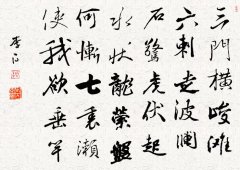 三門橫峻灘
六刺走波瀾
石驚虎伏起
水狀龍縈盤
何慚七里瀨
使我欲垂竿
李白